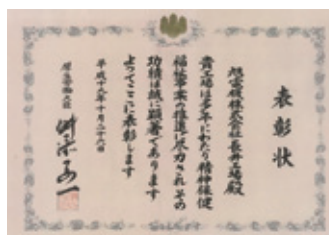 表彰状
旭電機株式会社長井工場殿
貴工場は多年にわたり精神保健
福祉事業の推進に尽力されその
功績は誠に顕著であります
よってここに表彰します
平成十九年十月二十六日
厚生労働大臣
舛添要一